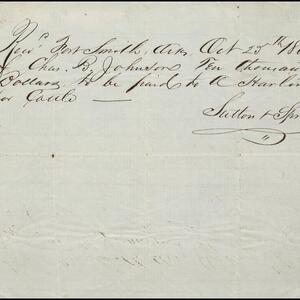 Recd. Fort Smith, Arks, Oct 25th 18
of Chas. B. Johnson Ten thousan
Dollars to be paid to A Harlin
for Cattle —
Sutton & Spr